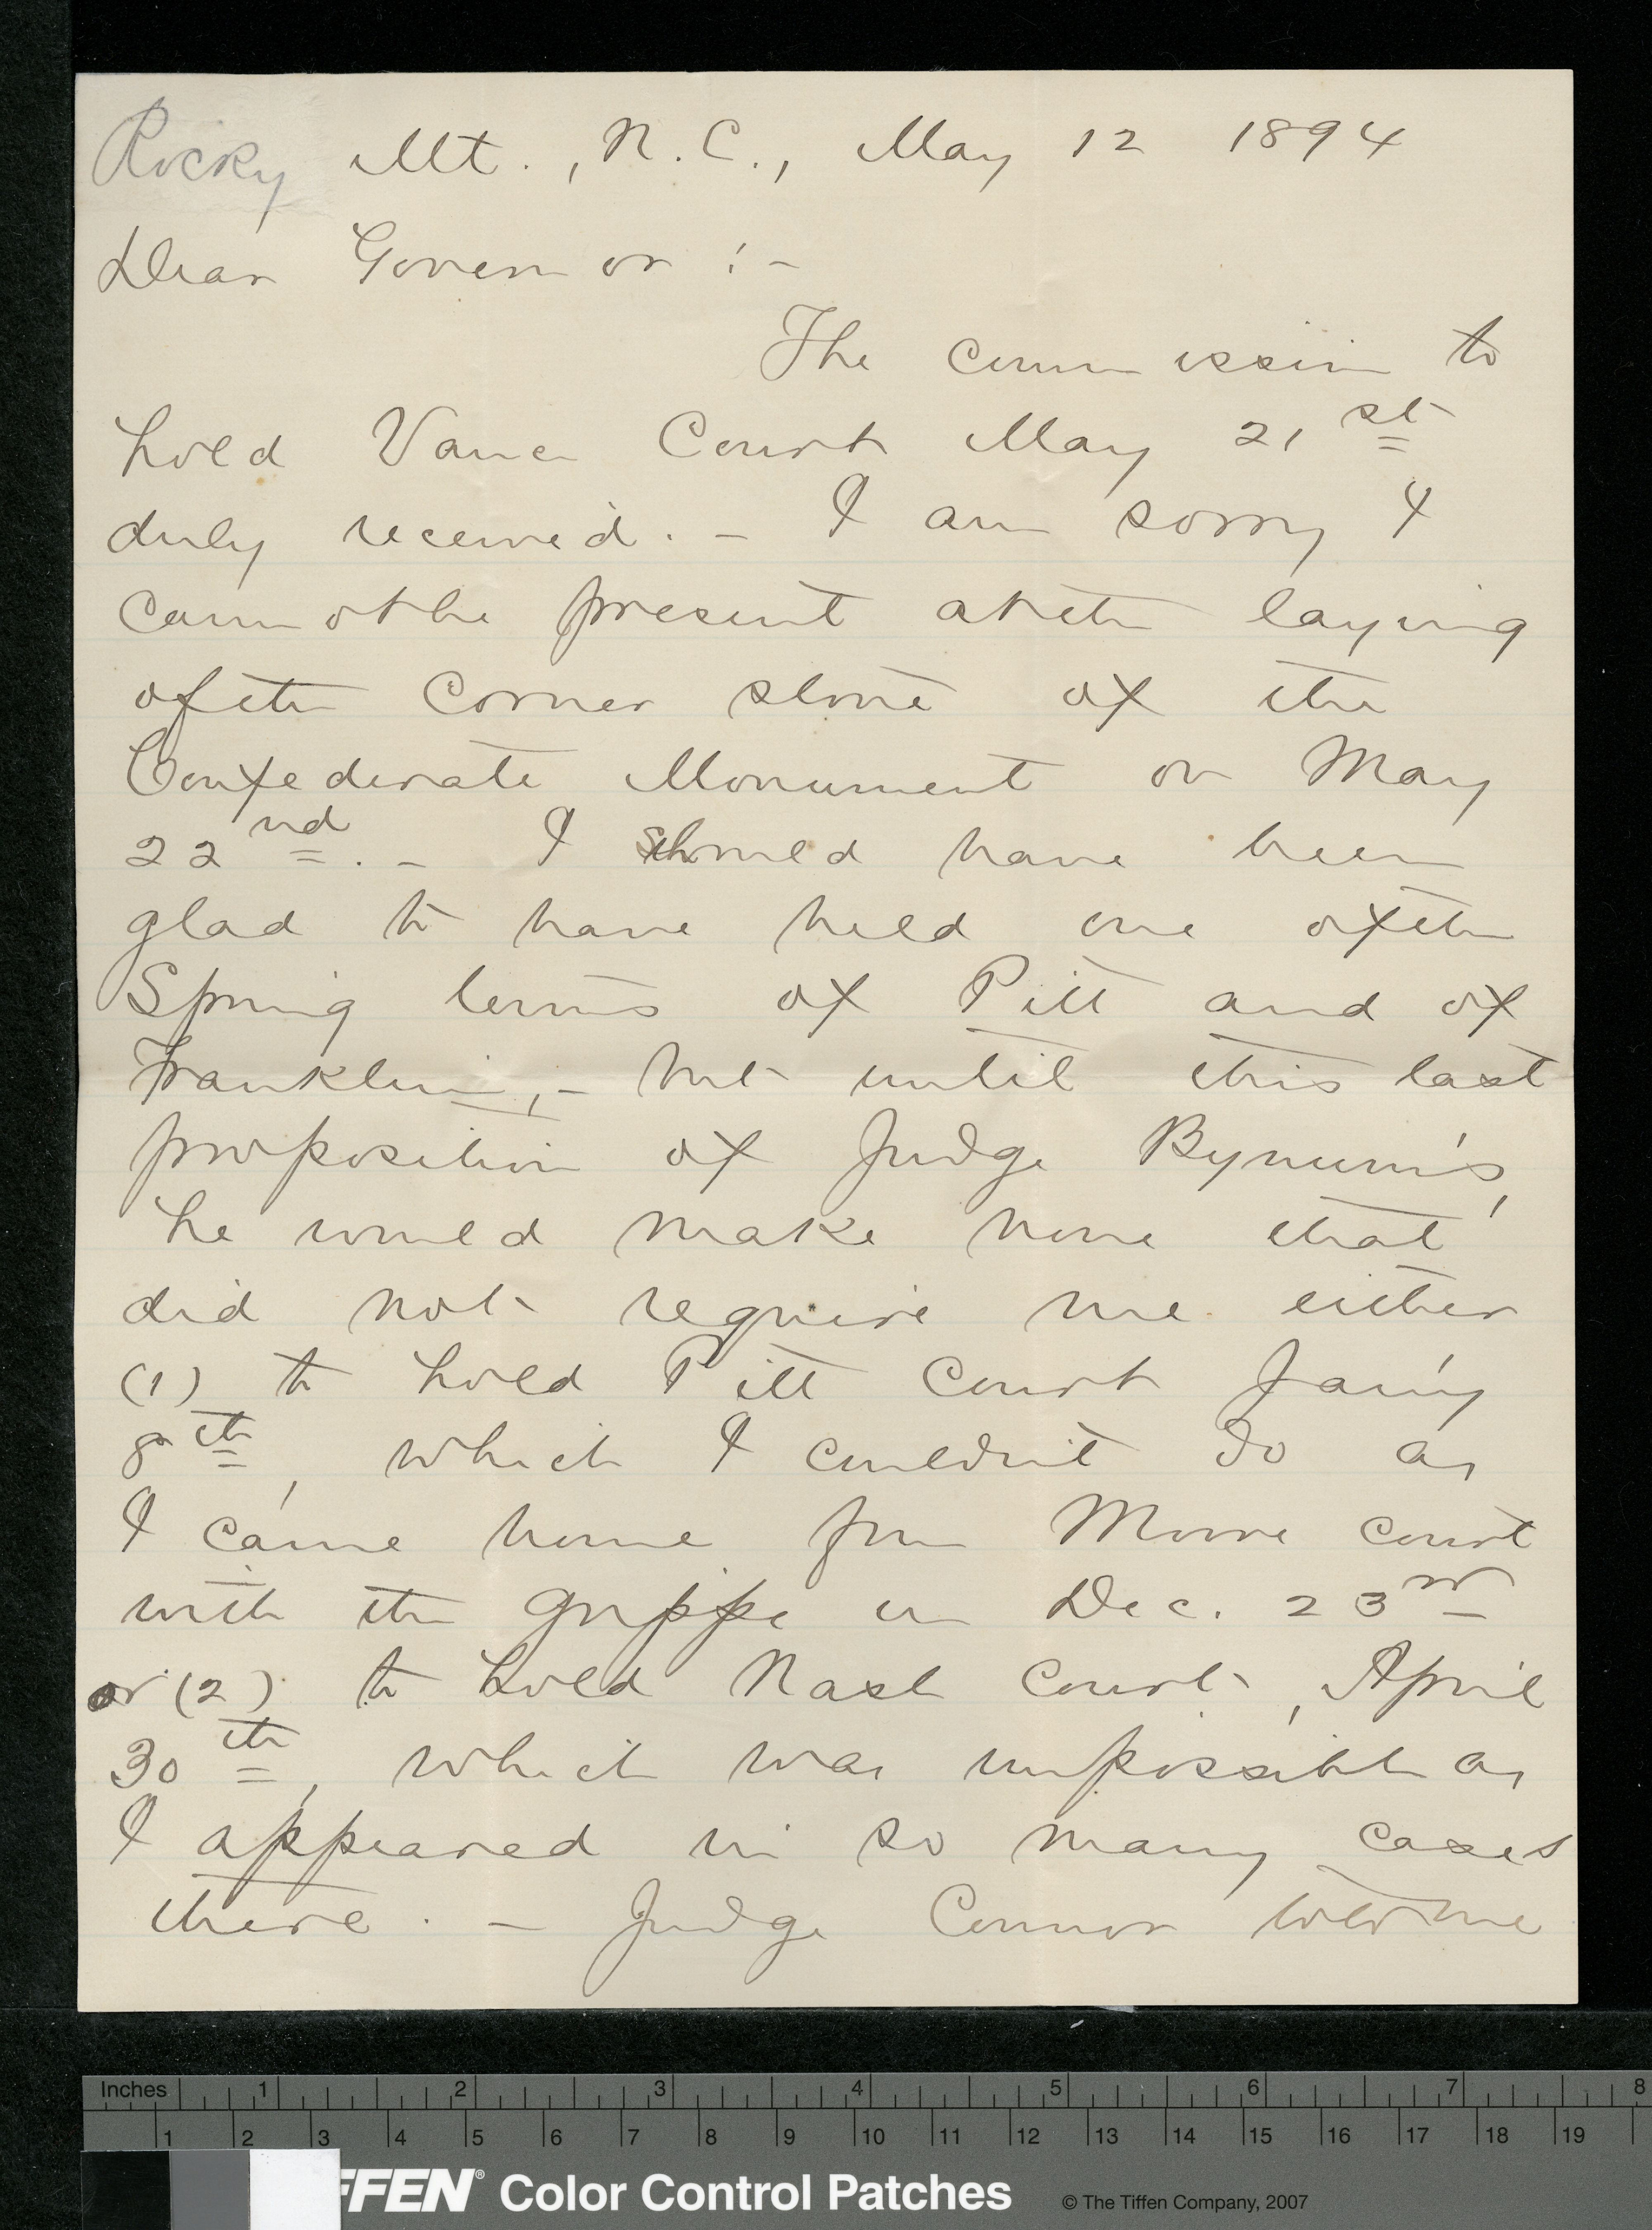 Rocky Mt., N.C., May 12 1894
Dear Governor :-
The commission to
hold Vance Court May 21st
duly received. - I am sorry I
cannot be present at the laying
of the corner stone of the
Confederate Monument on May
22nd. - I should have been
glad to have held one of the
Spring terms of Pitt and of
Franklin, - but until this last
proposition of Judge Bynum's,
he would make none that
did not require me either
(1) to hold Pitt Court Jan'y
8th, which I couldn't do as
I came home from Moore court
with the grippe on Dec. 23rd
or (2) to hold Nash Court, April
30th, which was impossible as
I appeared in so many cases
there. - Judge Connor told me
Inches 1 2 3 4 5 6 7 8
1 2 3 4 5 6 7 8 9 10 11 12 13 14 15 16 17 18 19
FFEN® Color Control Patches © The Tiffen Company, 2007